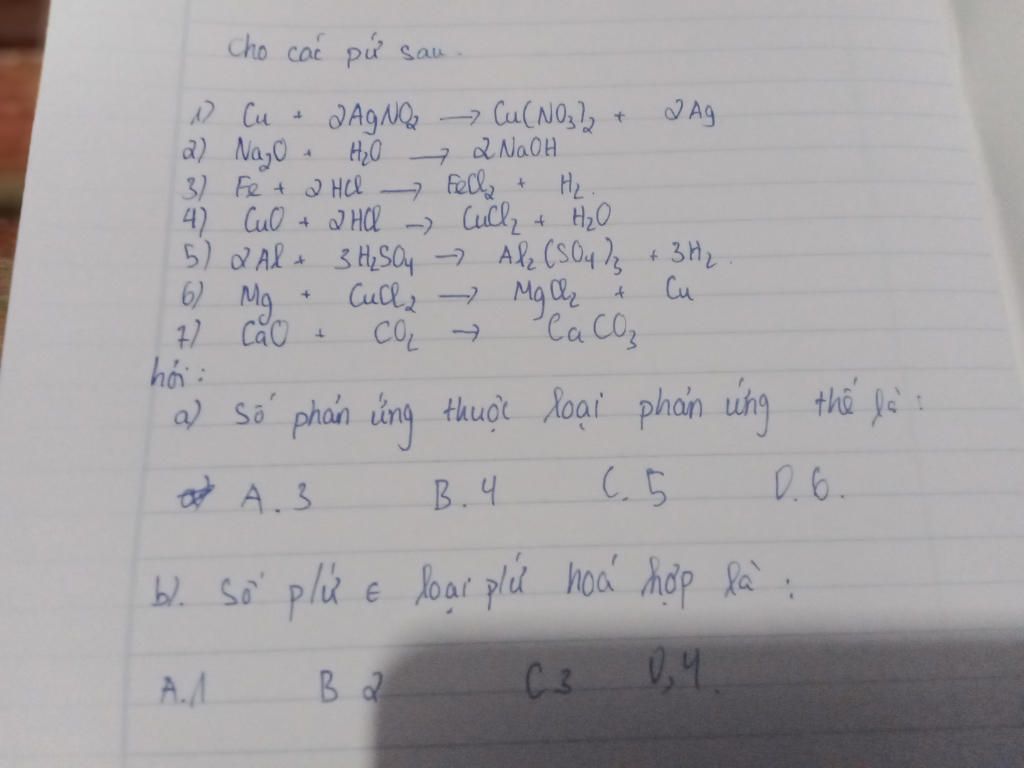 Cho các pứ sau.
1) Cu + 2AgNO₂ → Cu(NO₃)₂ + 2Ag
2) Na₂O + H₂O → 2NaOH
3) Fe + 2HCl → FeCl₂ + H₂.
4) CuO + 2HCl → CuCl₂ + H₂O
5) 2Al + 3H₂SO₄ → Al₂(SO₄)₃ + 3H₂.
6) Mg + CuCl₂ → MgCl₂ + Cu
7) CaO + CO₂ → CaCO₃
hỏi:
a) Số phản ứng thuộc loại phản ứng thế là:
A. 3 B. 4 C. 5 D. 6.
b). Số p/ứ ∈ loại p/ứ hoá hợp là:
A. 1 B 2 C 3 D, 4.